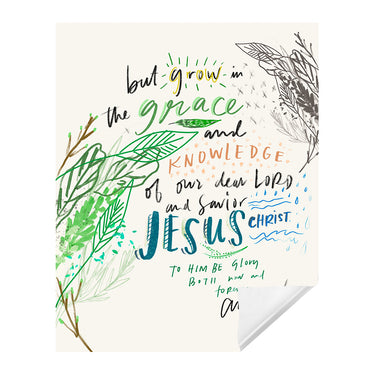 but grow in
the grace
and
KNOWLEDGE
of our dear LORD
and savior
JESUS CHRIST
TO HIM BE Glory
BOTH now and